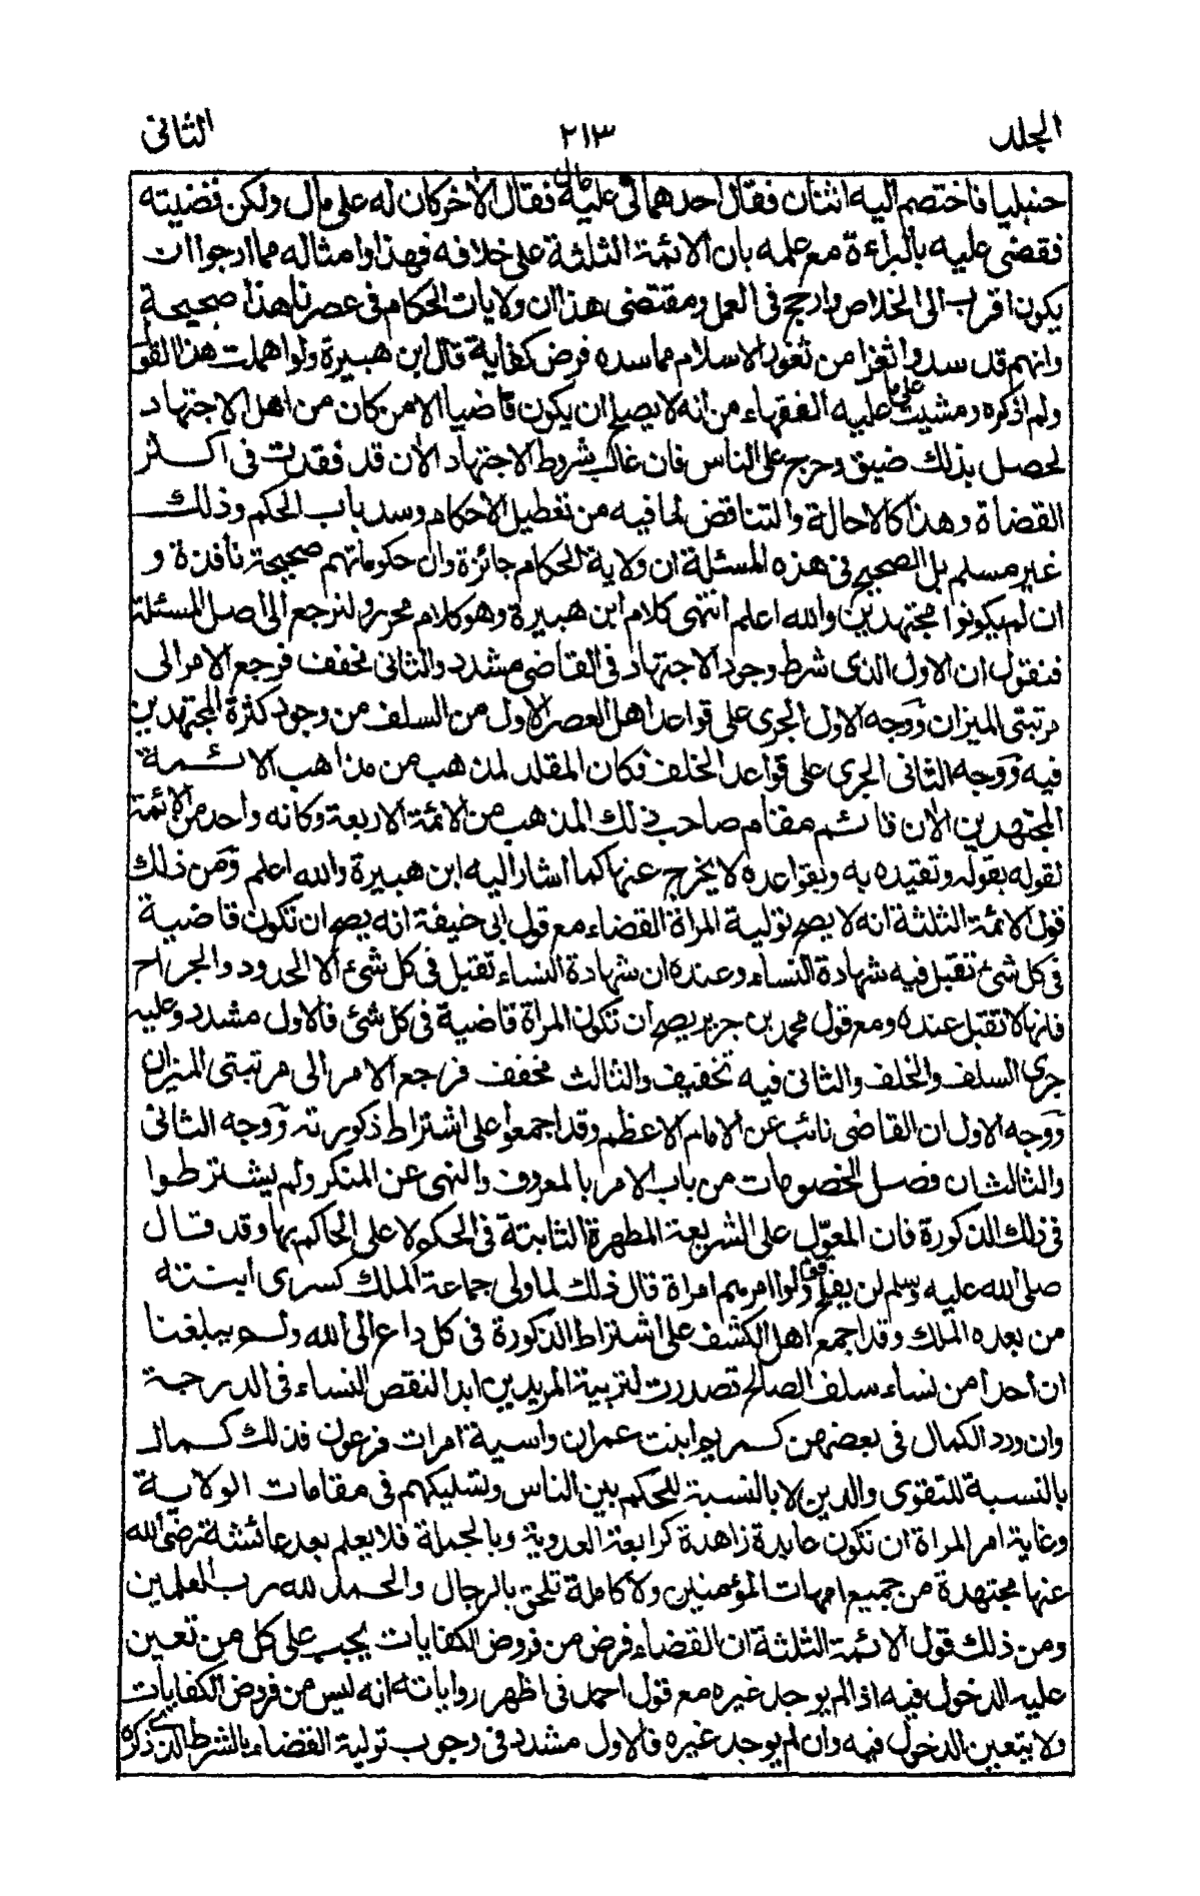 الجلد ٢١٣ الثانى
حنبليا فاختصم اليه اثنان فقال احدهما لى عليه مال فقال الاخر كان له على مال ولكن قضيته
فقضى عليه بالبراءة مع علمه بان الائمة الثلثة على خلافه فهذا وامثاله مما ارجو ان
يكون اقرب الى الخلاص وارجح فى العمل ومقتضى هذا ان ولايات الحكام فى عصرنا هذا صحيحة
وانهم قد سدوا ثغرا من ثغور الاسلام مما سده فرض كفاية قال ابن هبيرة ولو اهملت هذا القول
ولم اذكره ومشيت على ما عليه الفقهاء من انه لا يصلح ان يكون قاضيا الا من كان من اهل الاجتهاد
لحصل بذلك ضيق وحرج على الناس فان غالب شروط الاجتهاد الأن قد فقدت فى اكثر
القضاة وهذا كالاحالة والتناقض لما فيه من تعطيل الأحكام وسد باب الحكم وذلك
غير مسلم بل الصحيح فى هذه المسئلة ان ولاية الحكام جائزة وان حكوماتهم صحيحة نافذة و
ان لم يكونوا مجتهدين والله اعلم انتهى كلام ابن هبيرة وهو كلام محرر ولنرجع الى اصل المسئلة
فنقول ان الاول الذى شرط وجود الاجتهاد فى القاضى مشدد والثانى مخفف فرجع الامر الى
مرتبتى الميزان ووجه الاول الجرى على قواعد اهل العصر الاول من السلف من وجود كثرة المجتهدين
فيه ووجه الثانى الجرى على قواعد الخلف فكان المقلد لمذهب من مذاهب الائمة
المجتهدين الأن قائم مقام صاحب ذلك المذهب من الائمة الاربعة وكانه واحد من الائمة
لقوله بقوله وتقيده به وبقواعده لا يخرج عنها كما اشار اليه ابن هبيرة والله اعلم ومن ذلك
قول الائمة الثلثة انه لا يصح تولية المراة القضاء مع قول ابى حنيفة انه يصح ان تكون قاضية
فى كل شئ تقبل فيه شهادة النساء وعنده ان شهادة النساء تقبل فى كل شئ الا الحدود والجراح
فانها لا تقبل عنده ومع قول محمد بن جرير يصح ان تكون المراة قاضية فى كل شئ فالاول مشدد وعليه
جرى السلف والخلف والثانى فيه تخفيف والثالث مخفف فرجع الامر الى مرتبتى الميزان
ووجه الاول ان القاضى نائب عن الامام الاعظم وقد اجمعوا على اشتراط ذكورته ووجه الثانى
والثالث ان فصل الخصومات من باب الامر بالمعروف والنهى عن المنكر ولم يشترطوا
فى ذلك الذكورة فان المعول على الشريعة المطهرة الثابتة فى الحكم لا على الحاكم بها وقد قال
صلى الله عليه وسلم لن يفلح قوم ولوا امرهم امراة قال ذلك لما ولى جماعة الملك كسرى ابنته
من بعده الملك وقد اجمع اهل الكشف على اشتراط الذكورة فى كل داع الى الله ولم يبلغنا
ان أحدا من نساء سلف الصالح تصدرت لتربية المريدين ابدا لنقص النساء فى الدرجة
وان ورد الكمال فى بعضهن كمريم ابنت عمران واسية امرات فرعون فذلك كمال
بالنسبة للتقوى والدين لا بالنسبة للحكم بين الناس وتسليكهم فى مقامات الولاية
وغاية امر المراة ان تكون عابدة زاهدة كرابعة العدوية وبالجملة فلا يعلم بعد عائشة رضى الله
عنها مجتهدة من جميع امهات المؤمنين ولا كاملة تلحق بالرجال والحمد لله رب العلمين
ومن ذلك قول الائمة الثلثة ان القضاء فرض من فروض الكفايات يجب على كل من تعين
عليه الدخول فيه اذا لم يوجد غيره مع قول احمد فى اظهر رواياته انه ليس من فروض الكفايات
ولا يتعين الدخول فيه وان لم يوجد غيره فالاول مشدد فى وجوب تولية القضاء بالشرط الذى ذكره